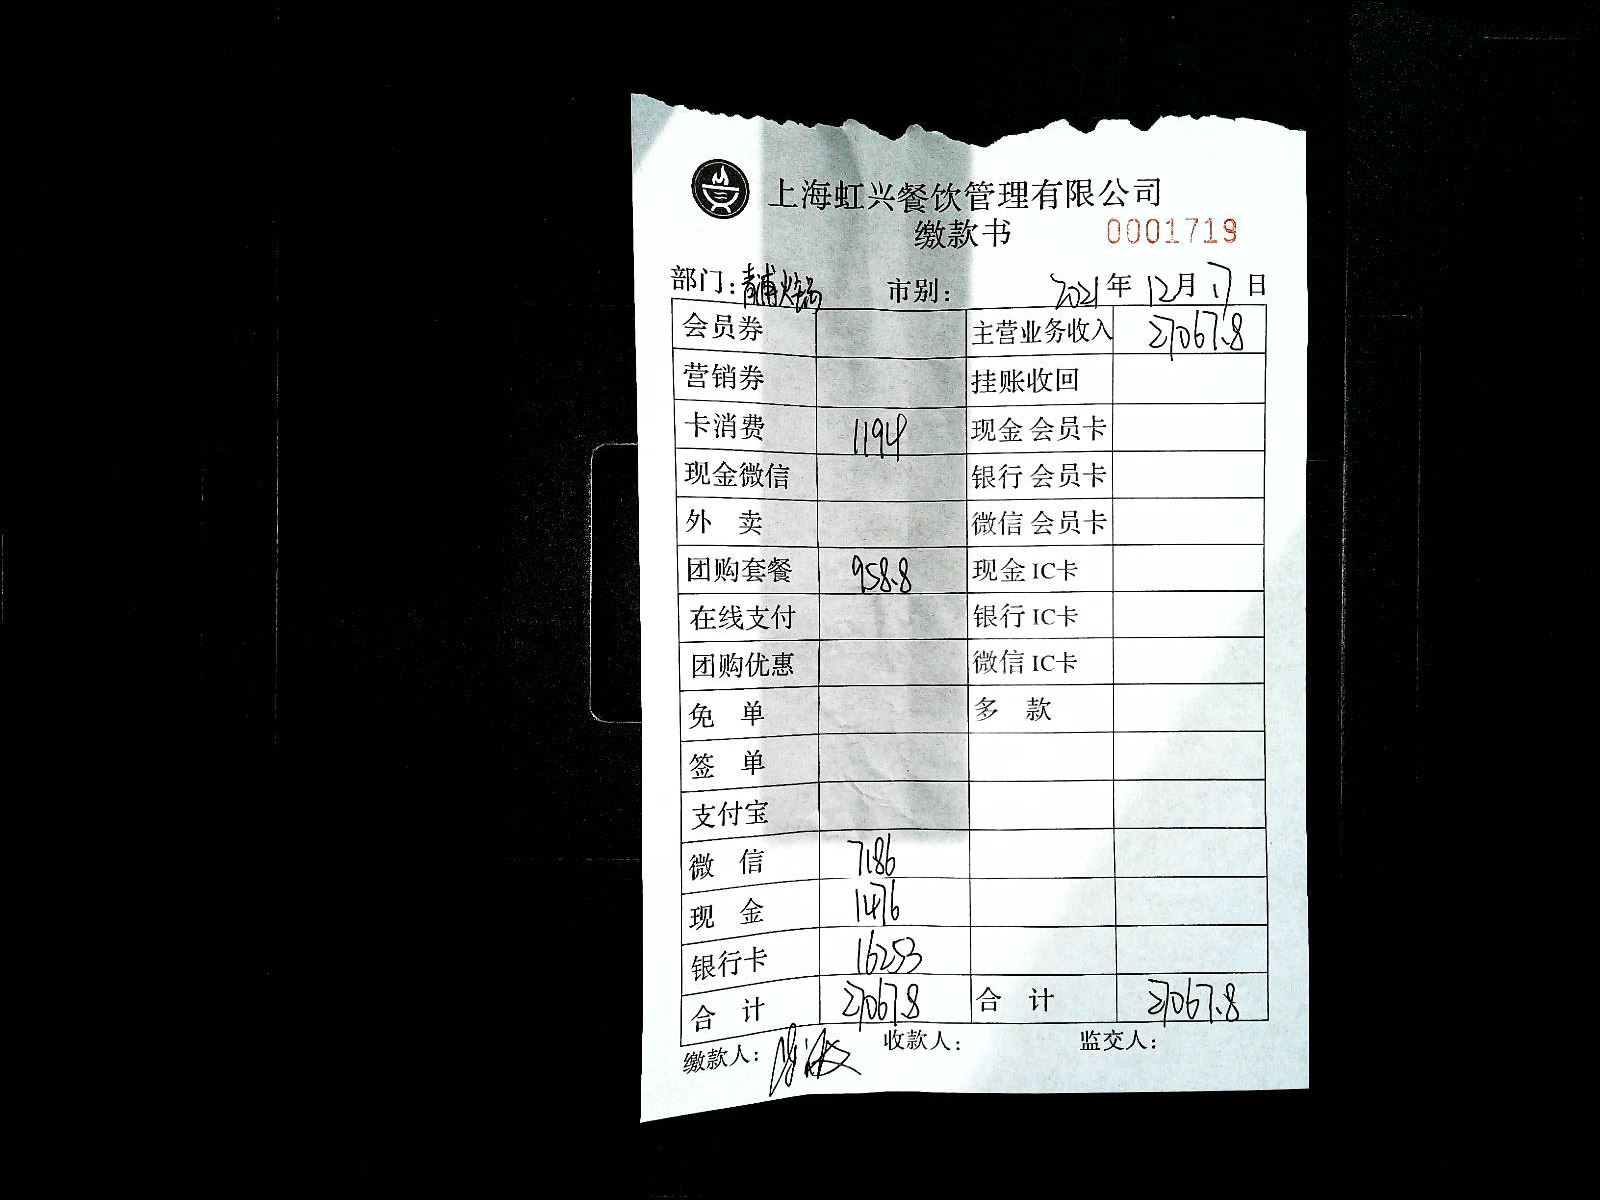 上海虹兴餐饮管理有限公司
缴款书 0001719
部门：青浦火锅 市别： 2021年 12月 17日
会员券 主营业务收入 27067.8
营销券 挂账收回
卡消费 1194 现金 会员卡
现金微信 银行 会员卡
外 卖 微信 会员卡
团购套餐 958.8 现金 IC卡
在线支付 银行 IC卡
团购优惠 微信 IC卡
免 单 多 款
签 单
支付宝
微 信 7186
现 金 1476
银行卡 16253
合 计 27067.8 合 计 27067.8
缴款人： 收款人： 监交人：